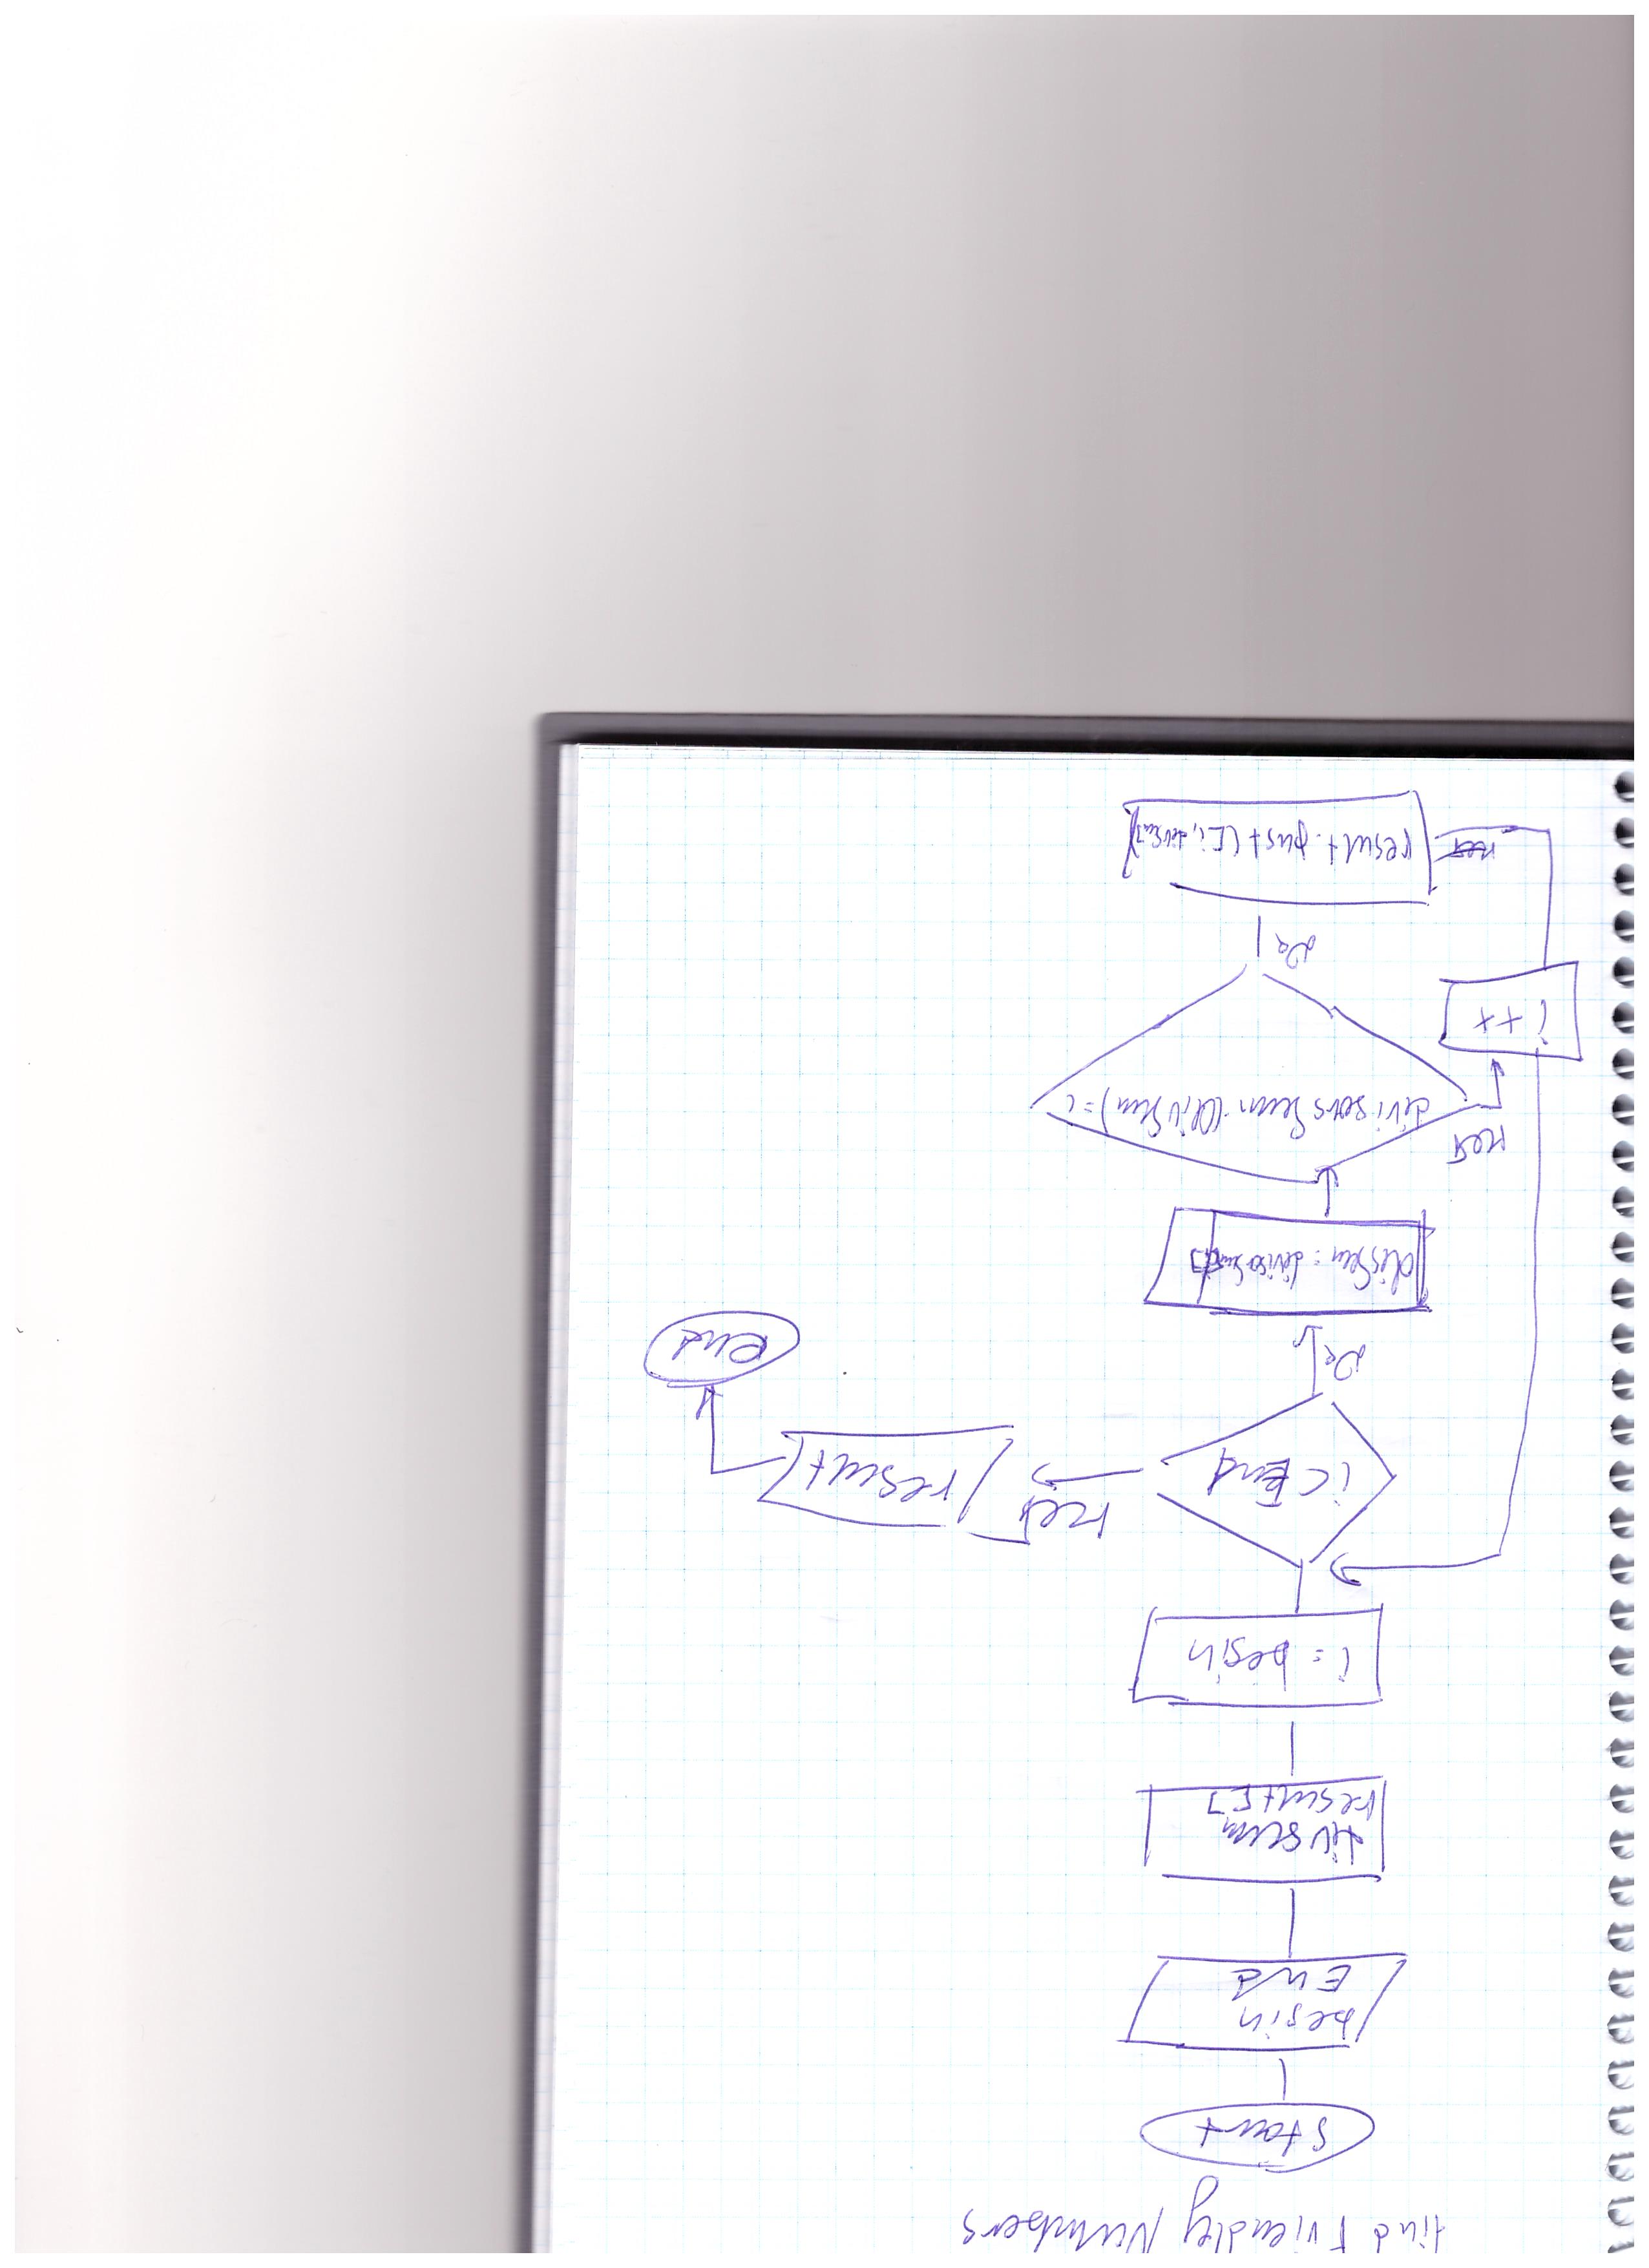 find Friendly Numbers
Start
begin
End
divSum
result[]
i = begin
i < End
нет
result
end
да
divSum = divisorsSum
divisorsSum(divSum) = i
нет
i++
да
result.push([i, divSum])